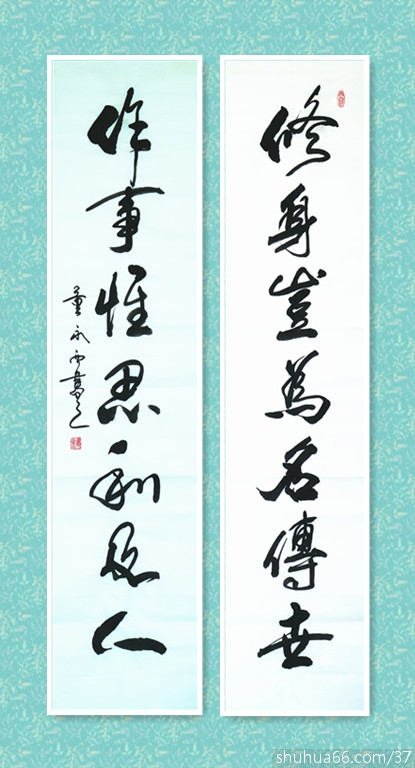 修身豈為名傳世
作事惟思利及人
shuhua66.com/37